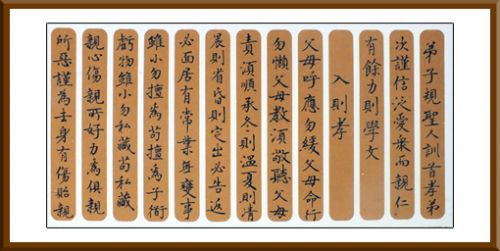 弟子規聖人訓首孝弟
次謹信泛愛眾而親仁
有餘力則學文
入則孝
父母呼應勿緩父母命行
勿懶父母教須敬聽父母
責須順承冬則溫夏則凊
晨則省昏則定出必告返
必面居有常業無變事
雖小勿擅為苟擅為子衜
虧物雖小勿私藏苟私藏
親心傷親所好力為俱親
所惡謹為去身有傷貽親